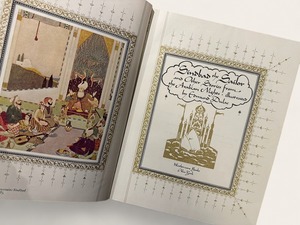 Sindbad the Sailor
and Other Stories from
the Arabian Nights illustrated
by Edmund Dulac
New York